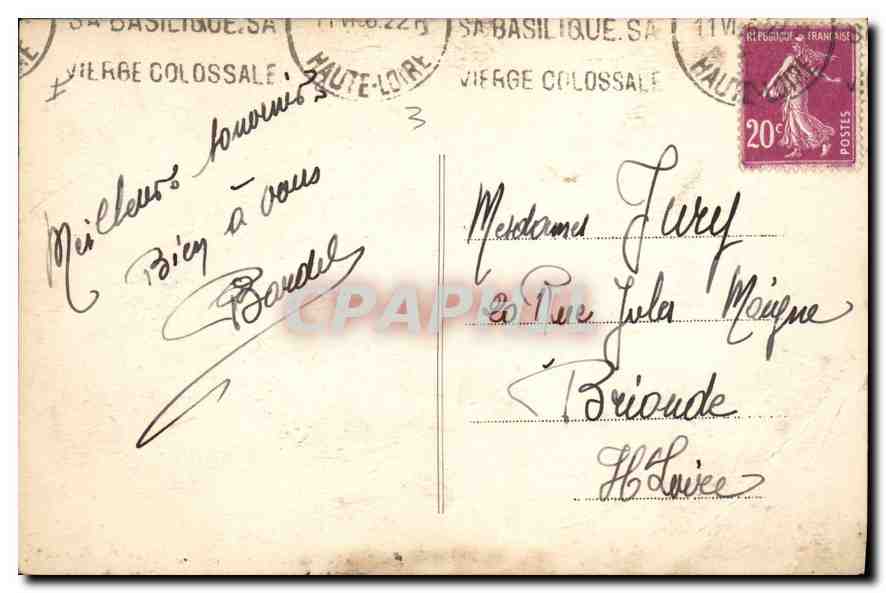 SA BASILIQUE.SA
VIERGE COLOSSALE
11 VI
HAUTE-LOIRE
SA BASILIQUE.SA
VIERGE COLOSSALE
11 VI
HAUTE-LOIRE
REPUBLIQUE FRANCAISE
20c
POSTES
3
Meilleurs souvenirs
Bien à vous
Bardel
CPAPHIL
Mesdames Jury
20 Rue Jules Maigne
à Brioude
Hte Loire